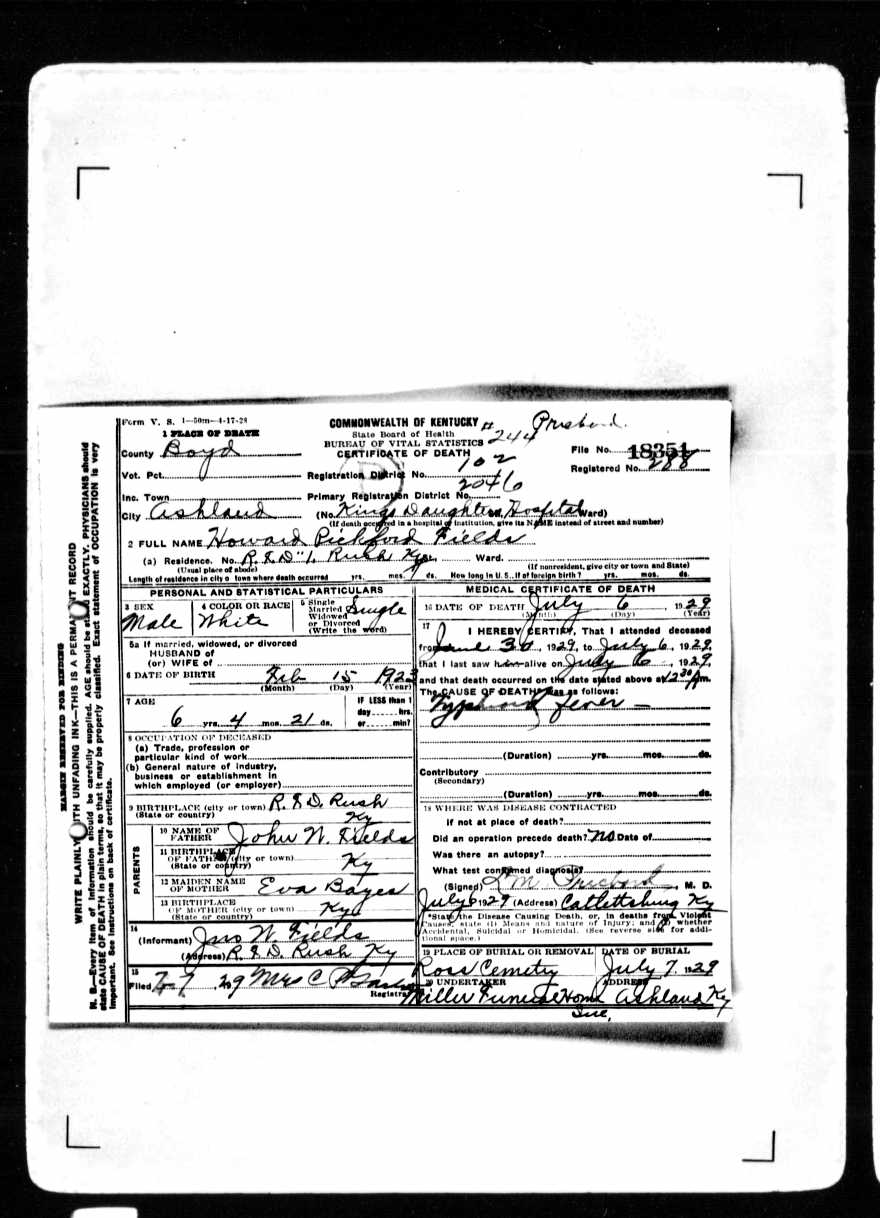 Form V. S. 1—50m—4-17-28
COMMONWEALTH OF KENTUCKY
# 244
State Board of Health
BUREAU OF VITAL STATISTICS
CERTIFICATE OF DEATH
File No. 18351
Registered No. 288
1 PLACE OF DEATH
County Boyd
Vot. Pct.
Registration District No. 102
Inc. Town
Primary Registration District No. 2046
City Ashland (No. Kings Daughters Hospital Ward)
(If death occurred in a hospital or institution, give its NAME instead of street and number)
2 FULL NAME Howard Pickford Fields
(a) Residence. No. R.F.D "1, Rush Ky Ward.
(Usual place of abode) (If nonresident, give city or town and State)
Length of residence in city o town where death occurred yrs. mos. ds. How long in U. S., if of foreign birth? yrs. mos. ds.
PERSONAL AND STATISTICAL PARTICULARS
3 SEX Male
4 COLOR OR RACE White
5 Single Married Widowed or Divorced (Write the word) Single
5a If married, widowed, or divorced
HUSBAND of
(or) WIFE of
6 DATE OF BIRTH Feb 15 1923
(Month) (Day) (Year)
7 AGE
6 yrs. 4 mos. 21 ds.
IF LESS than 1
day hrs.
or min?
8 OCCUPATION OF DECEASED
(a) Trade, profession or
particular kind of work
(b) General nature of industry,
business or establishment in
which employed (or employer)
9 BIRTHPLACE (city or town) R.F.D. Rush
(State or country) Ky
PARENTS
10 NAME OF FATHER John W. Fields
11 BIRTHPLACE
OF FATHER (city or town)
(State or country) Ky
12 MAIDEN NAME
OF MOTHER Eva Bayes
13 BIRTHPLACE
OF MOTHER (city or town)
(State or country) Ky
14
(Informant) Jno W. Fields
(Address) R.F.D. Rush Ky
15
Filed 7-9 29 Mrs C P
Registrar
MEDICAL CERTIFICATE OF DEATH
16 DATE OF DEATH July 6 1929
(Month) (Day) (Year)
17
I HEREBY CERTIFY, That I attended deceased
from June 30, 1929, to July 6, 1929,
that I last saw him alive on July 6, 1929,
and that death occurred on the date stated above at 12 30 A m.
The CAUSE OF DEATH was as follows:
Typhoid fever —
(Duration) yrs. mos. ds.
Contributory
(Secondary)
(Duration) yrs. mos. ds.
18 WHERE WAS DISEASE CONTRACTED
If not at place of death?
Did an operation precede death? No Date of
Was there an autopsy?
What test confirmed diagnosis?
(Signed) M. D.
July 6 1929 (Address) Catlettsburg Ky
*State the Disease Causing Death, or, in deaths from Violent
Causes, state (1) Means and nature of Injury; and (2) whether
Accidental, Suicidal or Homicidal. (See reverse side for addi-
tional space.)
19 PLACE OF BURIAL OR REMOVAL Ross Cemetry
DATE OF BURIAL July 7, 1929
20 UNDERTAKER Miller Funeral Home Inc.
ADDRESS Ashland Ky
MARGIN RESERVED FOR BINDING
WRITE PLAINLY WITH UNFADING INK—THIS IS A PERMANENT RECORD
N. B.—Every item of information should be carefully supplied. AGE should be stated EXACTLY. PHYSICIANS should
state CAUSE OF DEATH in plain terms, so that it may be properly classified. Exact statement of OCCUPATION is very
important. See instructions on back of certificate.